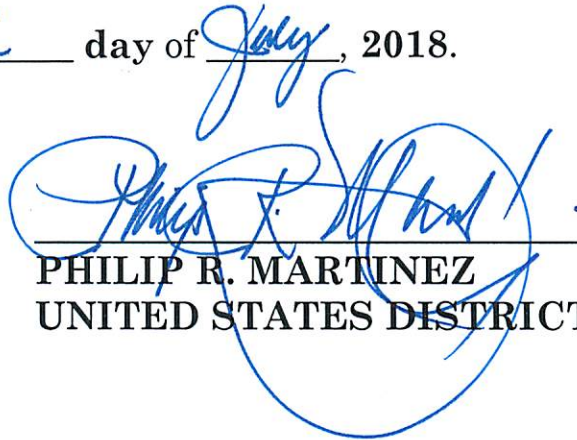 day of July, 2018.
Philip R. Martinez
PHILIP R. MARTINEZ
UNITED STATES DISTRICT